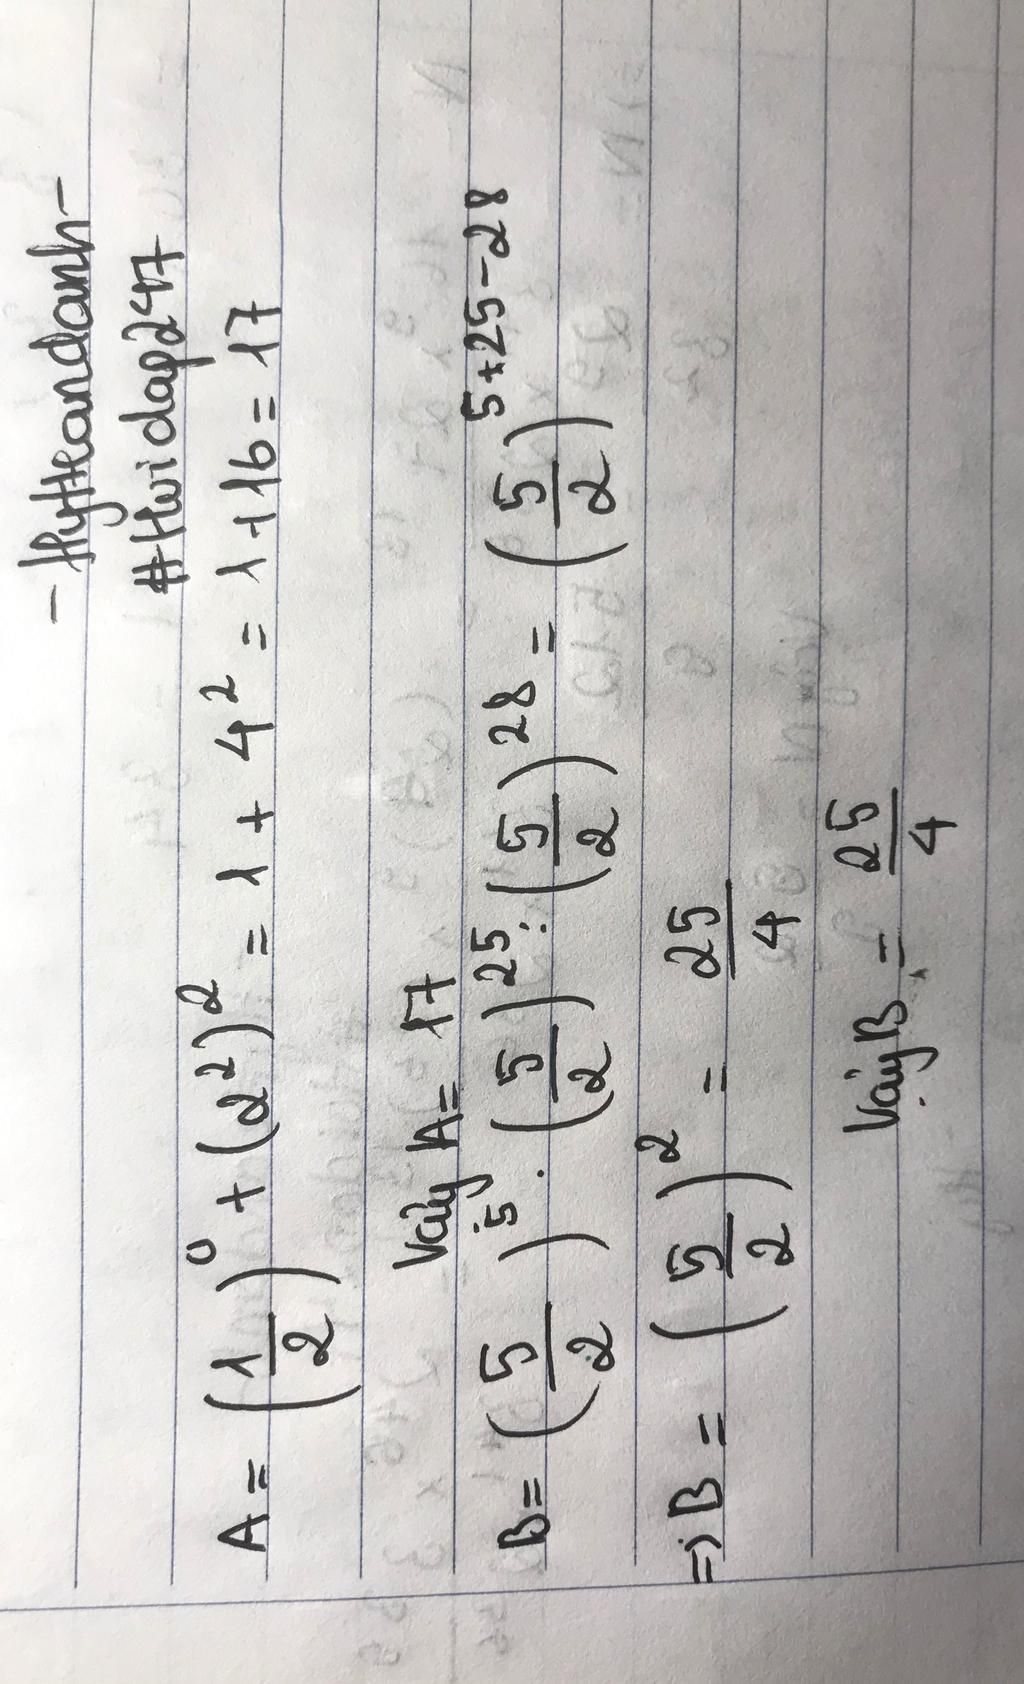 - Hytteandanh -
#Hwidap247
A = (1/2)^0 + (2^2)^2 = 1 + 4^2 = 1 + 16 = 17
Vậy A = 17
B = (5/2)^5 . (5/2)^25 : (5/2)^28 = (5/2)^5+25-28
=> B = (5/2)^2 = 25/4
Vậy B = 25/4